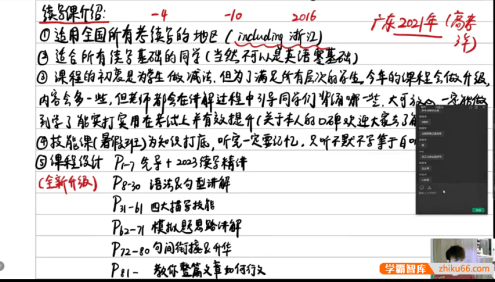 续写课介绍: -4 -10 2016
广东2021年 (高考
① 适用全国所有考续写的地区 (including 浙江)
② 适合所有续写基础的同学 (当然,可以是英语零基础)
③ 课程的初衷是为学生做减法,但为了满足所有层次的学生,今年的课程会做升级,
内容会多一些,但老师都会在讲解过程中引导同学们
到学了能实打实用在考试上并有效提升
④ 技能课(暑假班)为知识打底,听完一定要记忆,只听不默不等于白
⑤ 课程设计 P1-7 先导 + 2023续写精讲
(全新升级) P8-30 语法&句型讲解
P31-61 四大描写技能
P62-71 模拟题思路讲解
P72-80 句间衔接&升华
P81- 教你整篇文章如何行文
学霸智库
zhiku66.com